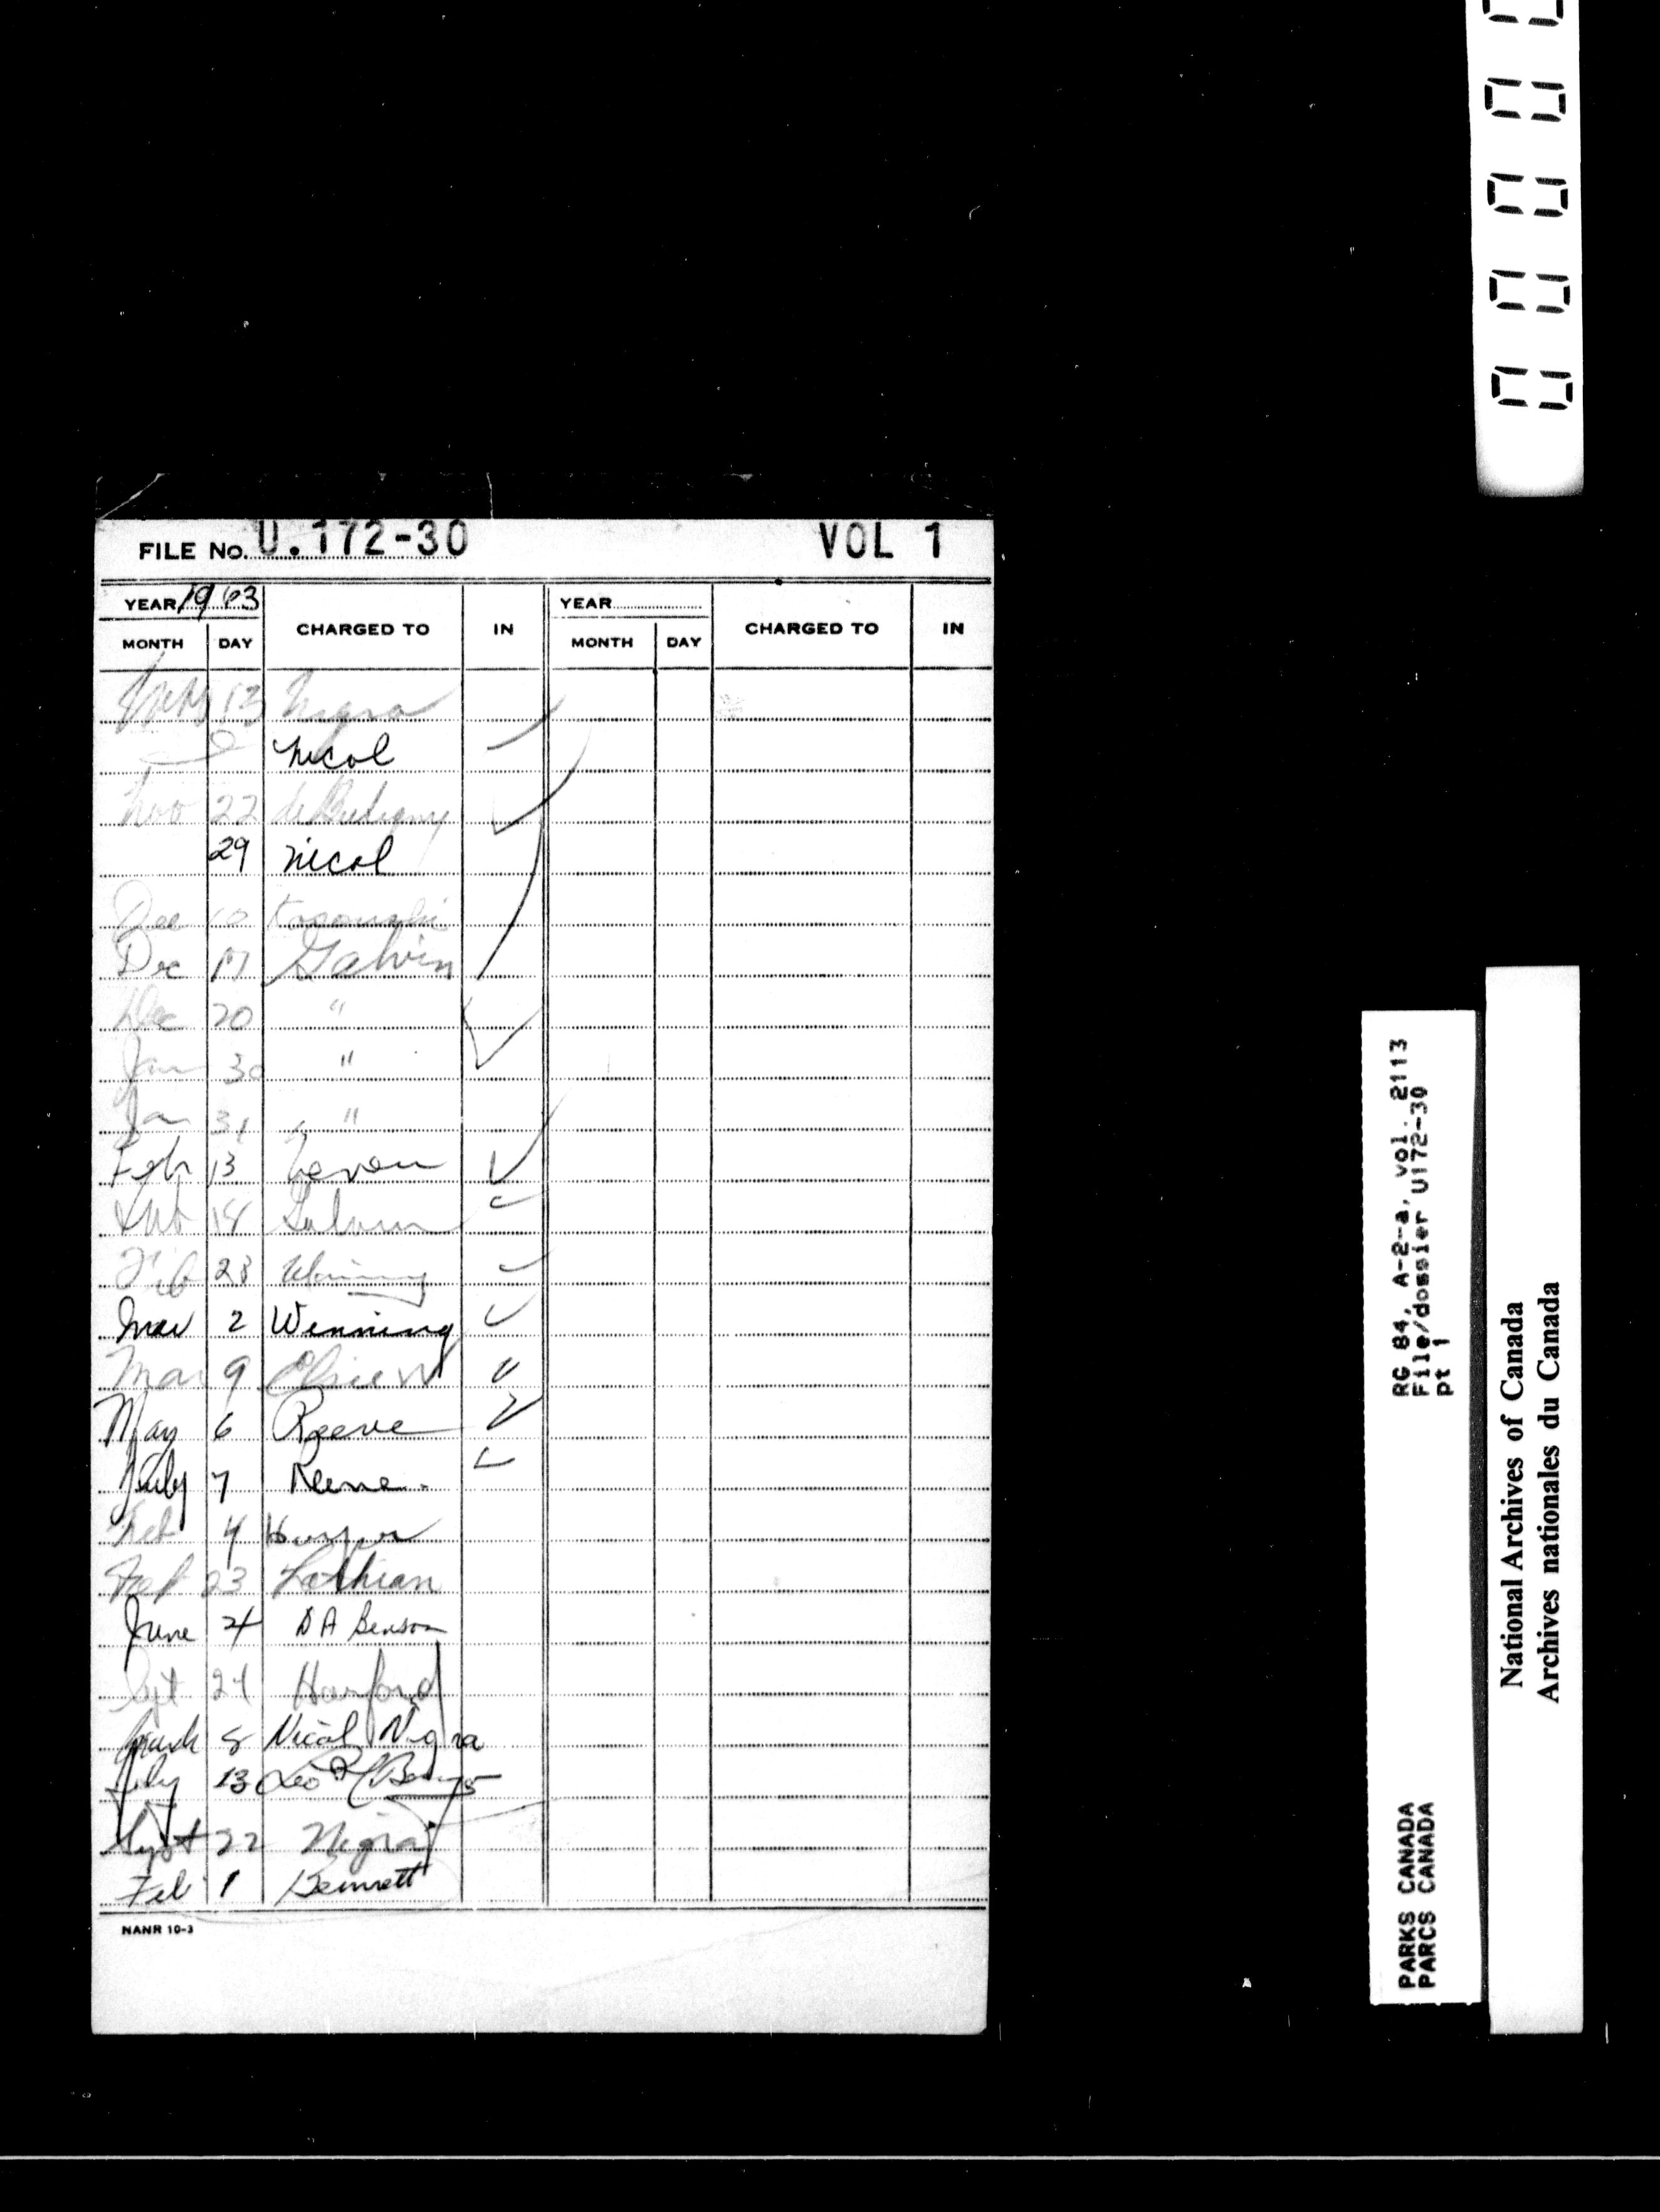 FILE No. U.172-30 VOL 1
YEAR 1963 CHARGED TO IN YEAR CHARGED TO IN
MONTH DAY MONTH DAY
13 Nigra
Nicol
Nov 22
29 Nicol
Dec 10
Dec 17 Galvin
Dec 20 "
Jan 30 "
Jan 31 "
Feb 13
18
Feb 28 Winning
Mar 2 Winning
Mar 9
May 6 Reeve
July 7 Reeve
Feb 4
23 Lothian
June 4 D A Benson
Sept 24
March 8 Nicol Nigra
July 13 Leo
Sept 22 Nigra
Feb 1 Bennett
NANR 10-3
0 0 0 0 0
RG 84, A-2-a, vol. 2113
File/dossier U172-30
pt 1
PARKS CANADA
PARCS CANADA
National Archives of Canada
Archives nationales du Canada